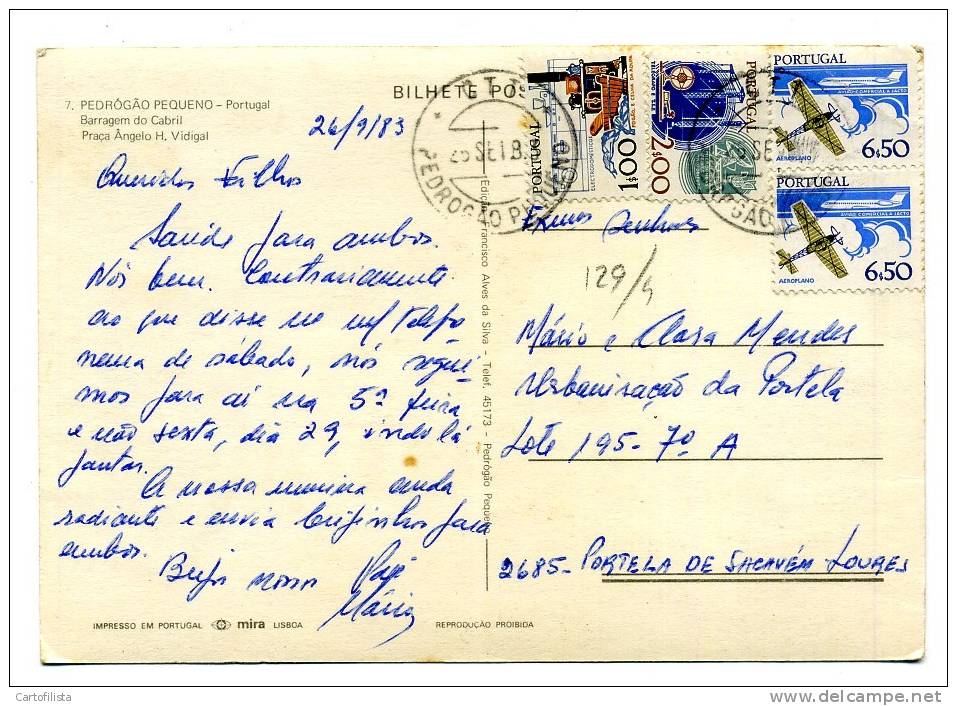 7. PEDRÓGÃO PEQUENO – Portugal
Barragem do Cabril
Praça Ângelo H. Vidigal
BILHETE POS
26/9/83
Queridos Filhos
Saúde para ambos.
Nós bem. Contrariamente
ao que disse no m/ telefo
nema de sábado, nós segui-
mos para aí na 5ª feira
e não sexta, dia 29, indo lá
jantar.
A nossa menina anda
radiante e envia beijinhos para
ambos.
Beijos nossos
Mário
IMPRESSO EM PORTUGAL mira LISBOA
REPRODUÇÃO PROIBIDA
Edição Francisco Alves da Silva - Telef. 45173 - Pedrógão Pequeno
PORTUGAL
1$00
PORTUGAL
2$00
PORTUGAL
AVIÃO COMERCIAL A JACTO
AEROPLANO
6$50
PORTUGAL
AVIÃO COMERCIAL A JACTO
AEROPLANO
6$50
PEDROGÃO PEQUENO
Exmos Senhores
129/4
Mário e Clara Mendes
Urbanização da Portela
Lote 195-7º A
2685- PORTELA DE SACAVÉM LOURES
Cartofilista
delcampe.net